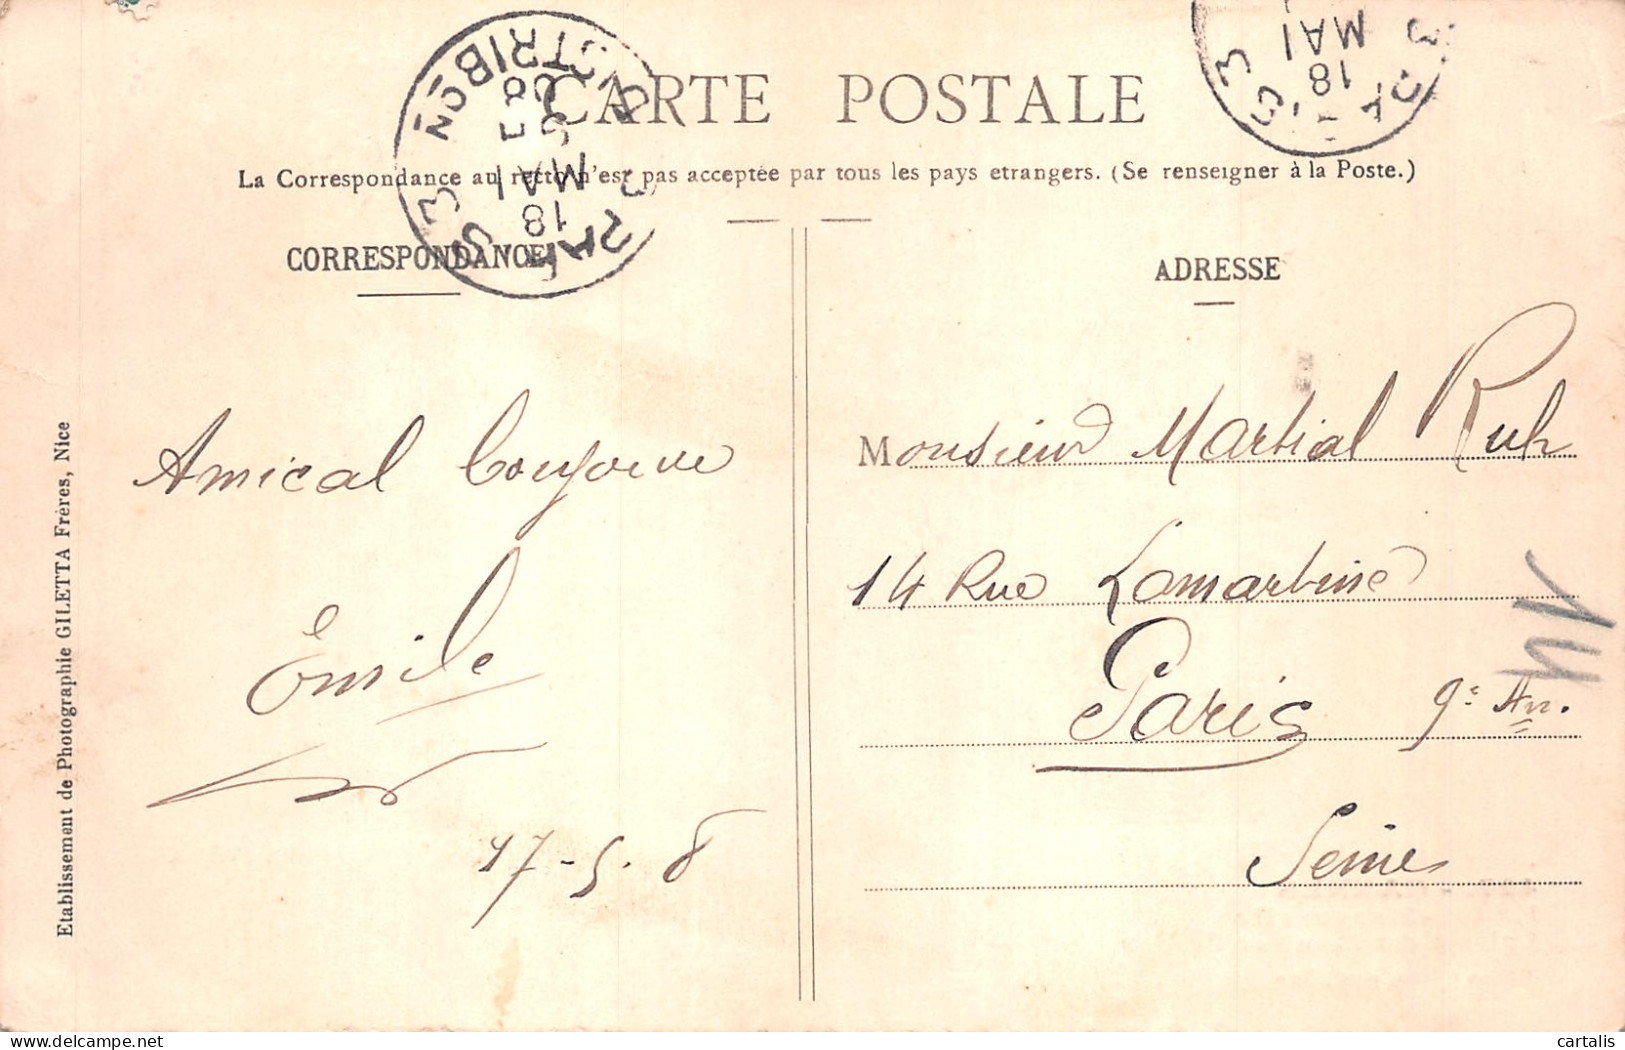 CARTE POSTALE
La Correspondance au recto n'est pas acceptée par tous les pays etrangers. (Se renseigner à la Poste.)
CORRESPONDANCE
ADRESSE
Amical bonjour
Émile
17-5-8
Monsieur Martial Ruh
14 Rue Lamartine
Paris 9e Arr.
Seine
Etablissement de Photographie GILETTA Frères, Nice
DISTRIBON
18
MAI
PARIS
18
MAI
delcampe.net
cartalis